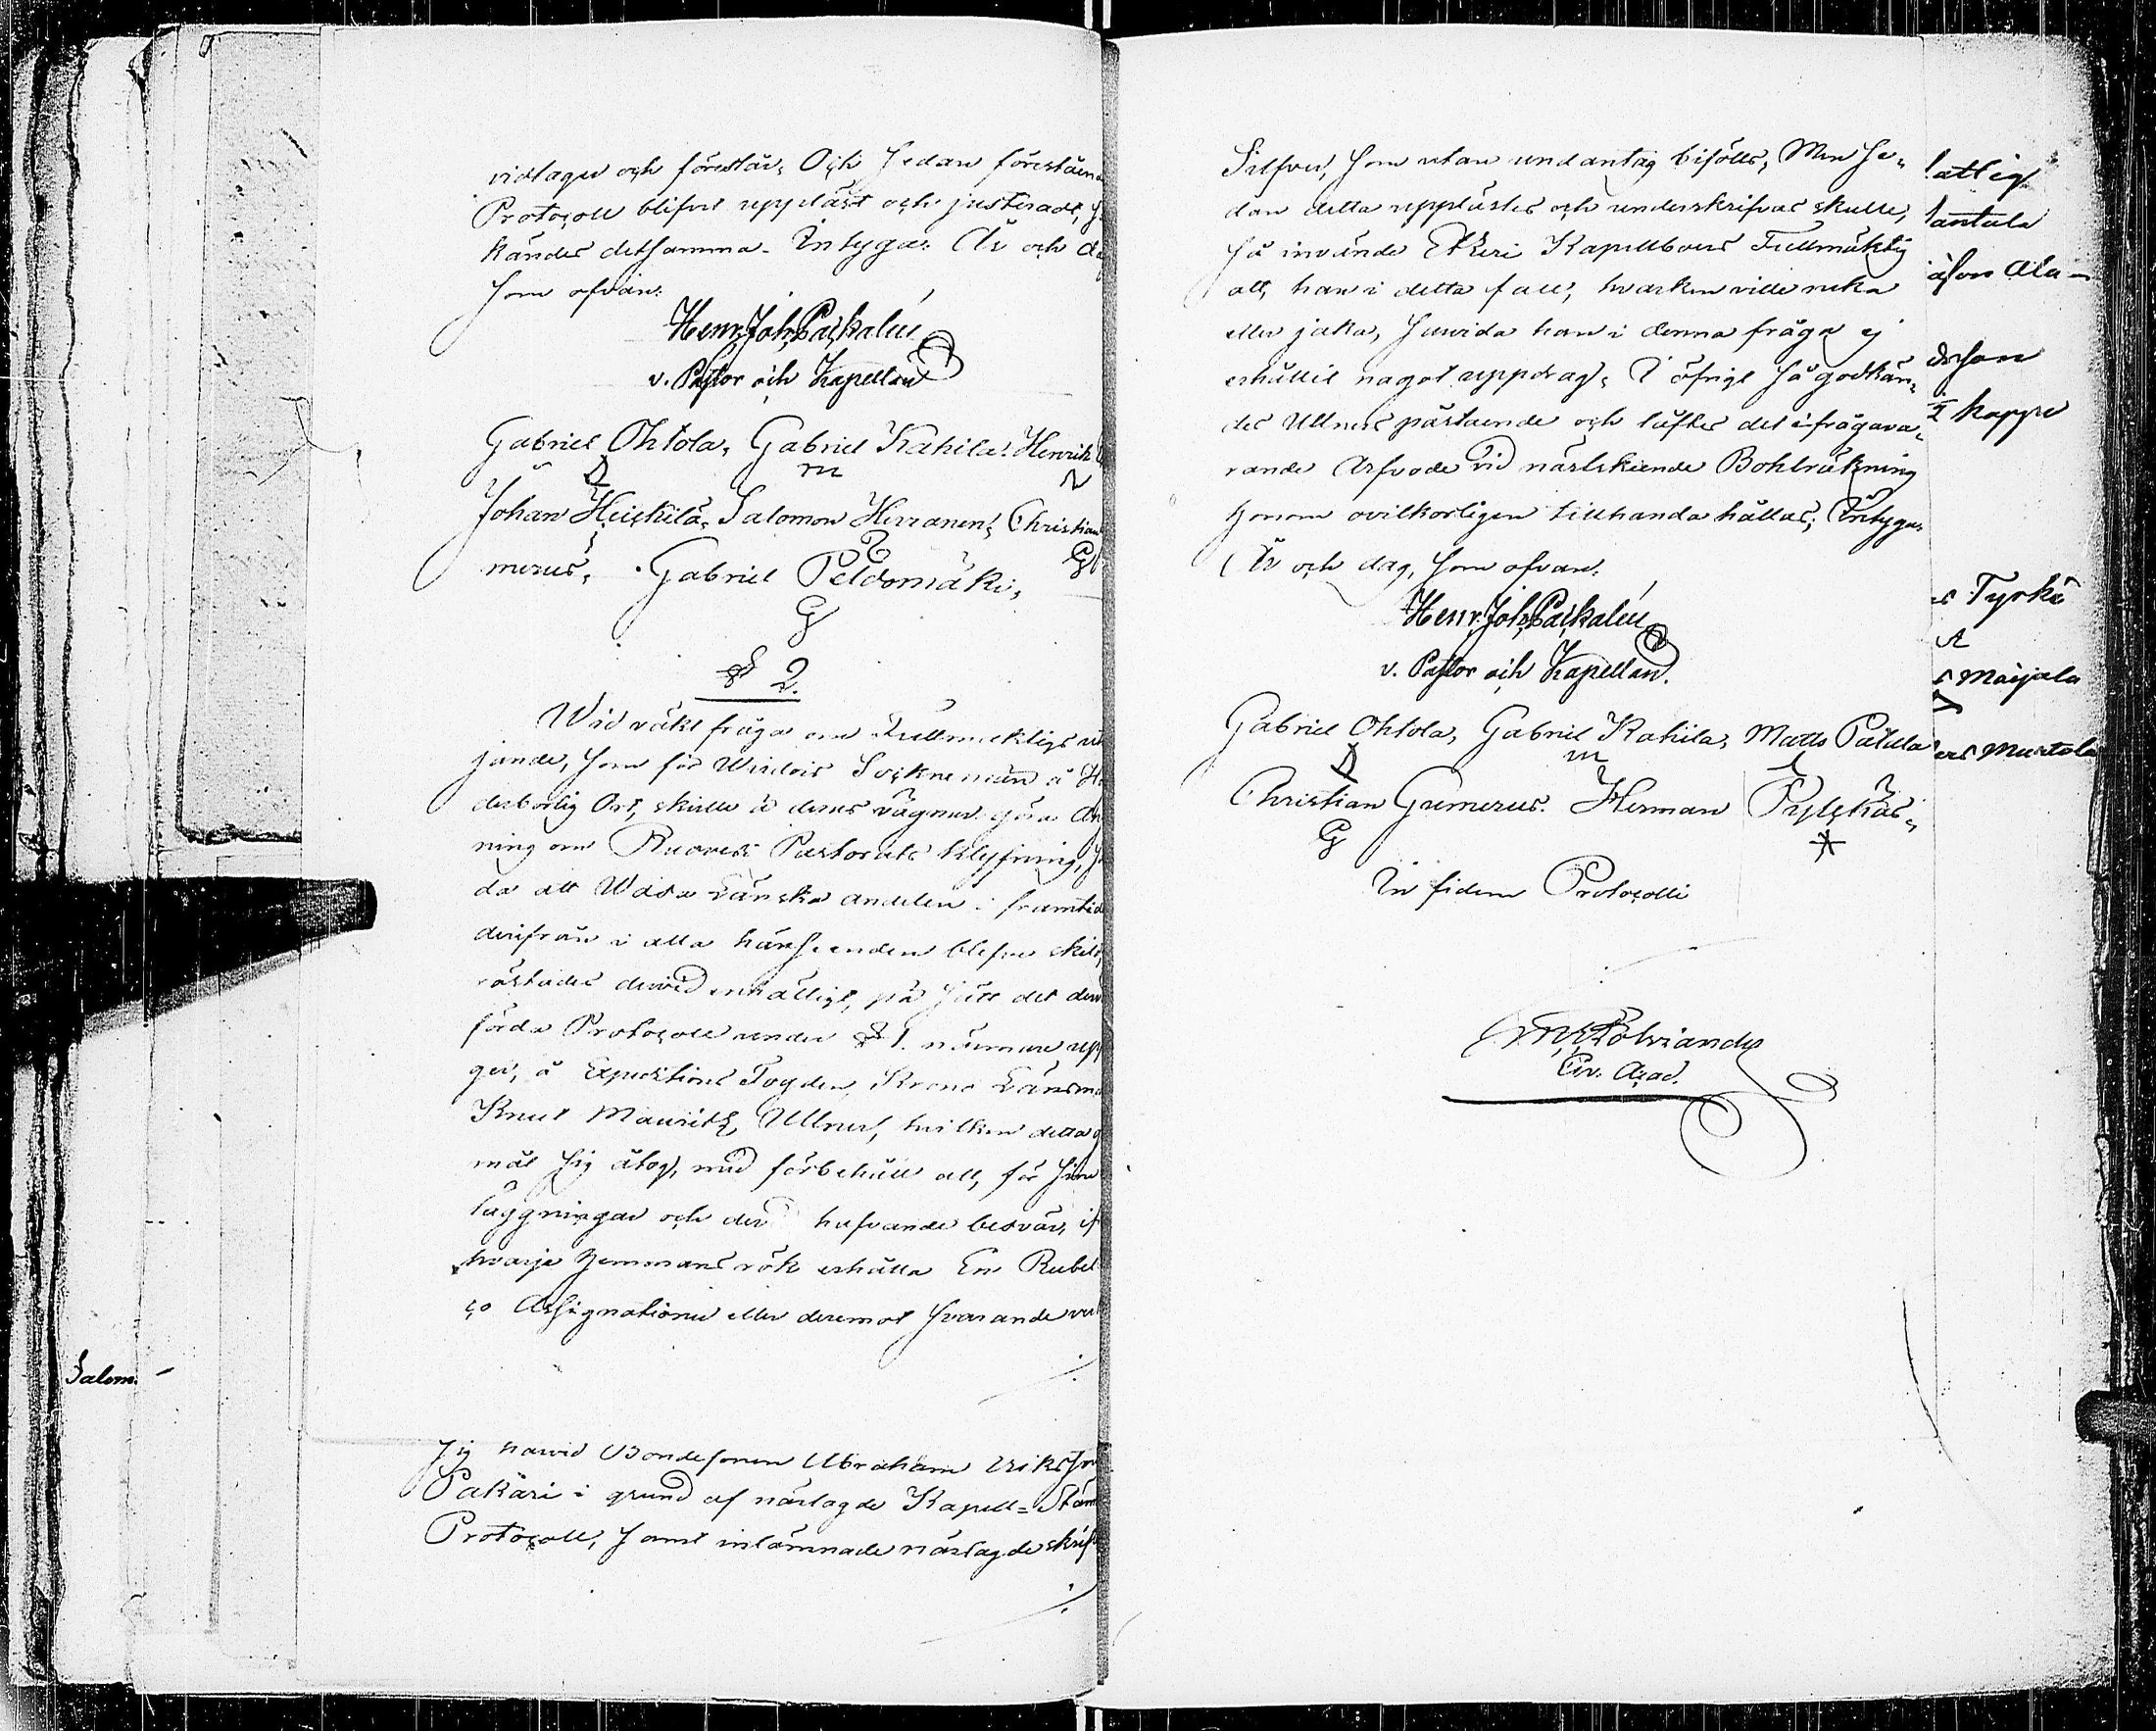 vidtager och förestår. Och sedan förestáen
Protocoll blifvit uppläst och justeradt,
kändes detsamma. Intygar År och
som ofvan.
Henr. Joh. Paçkalen
v. Pastor och Kapellan
Gabriel Ohtola, Gabriel Kahila, Henrik
m
Johan Heiskilä, Salomon Herranen, Christian
merus, Gabriel Peldomäki,
G
§ 2.
Wid väkt fråga om Fullmecktigs
jande, som för Wirdois Sockne män å
derbörlig Ort, skulle å deras vägnar göra An
ning om Ruovesi Pastorats klyfning,
da att Wasa Länska andelen i framtid
derifrån i alla hänseenden blefve skild,
röstades dervid enhälligt, på sätt det
förda Protocoll under § 1. närmare upp
ger, å Expeditions Fogden, Krono Länsma
Knut Mauritz Ullner, hvilken detta
mål sig åtog, med förbehåll att, för sina
läggningar och der hafvande besvär,
hvarje Hemmans rök erhålla En Rubel
co Assignationer eller deremot svarande
Salom.
Sig harvid Bondesonen Abraham Eriksson
Pakari i grund af närlagde Kapell=Stäm
Protocoll, samt inlämnade närlagde skrift
Silfver, som utan undantag bifölls, Men se-
dan detta upplästes och underskrifvas skulle,
så invände Etseri Kapellboers Fullmäktig
att, han i detta fall, hvarken ville neka
eller jaka, såvida han i denna fråga ej
erhållit nagot uppdrag. I öfrigt så godkän-
des Ullners påstaende och läftes det ifrågava-
rande Arfvode vid närlskeende Bohlräkning
honom ovilkorligen tillhanda hållas; Intygas
År och dag, som ofvan.
Henr. Joh. Paçkalen
v. Pastor och Kapellan.
Gabriel Ohtola, Gabriel Kahila, Matts Patala
m
Christian Gumerus. Herman
G
In fidem Protocolli
Civ. Acad.
latligt
lantala
åson Ala-
dsson
kappe
s Tyrkö
s Maijala
ers Murtola